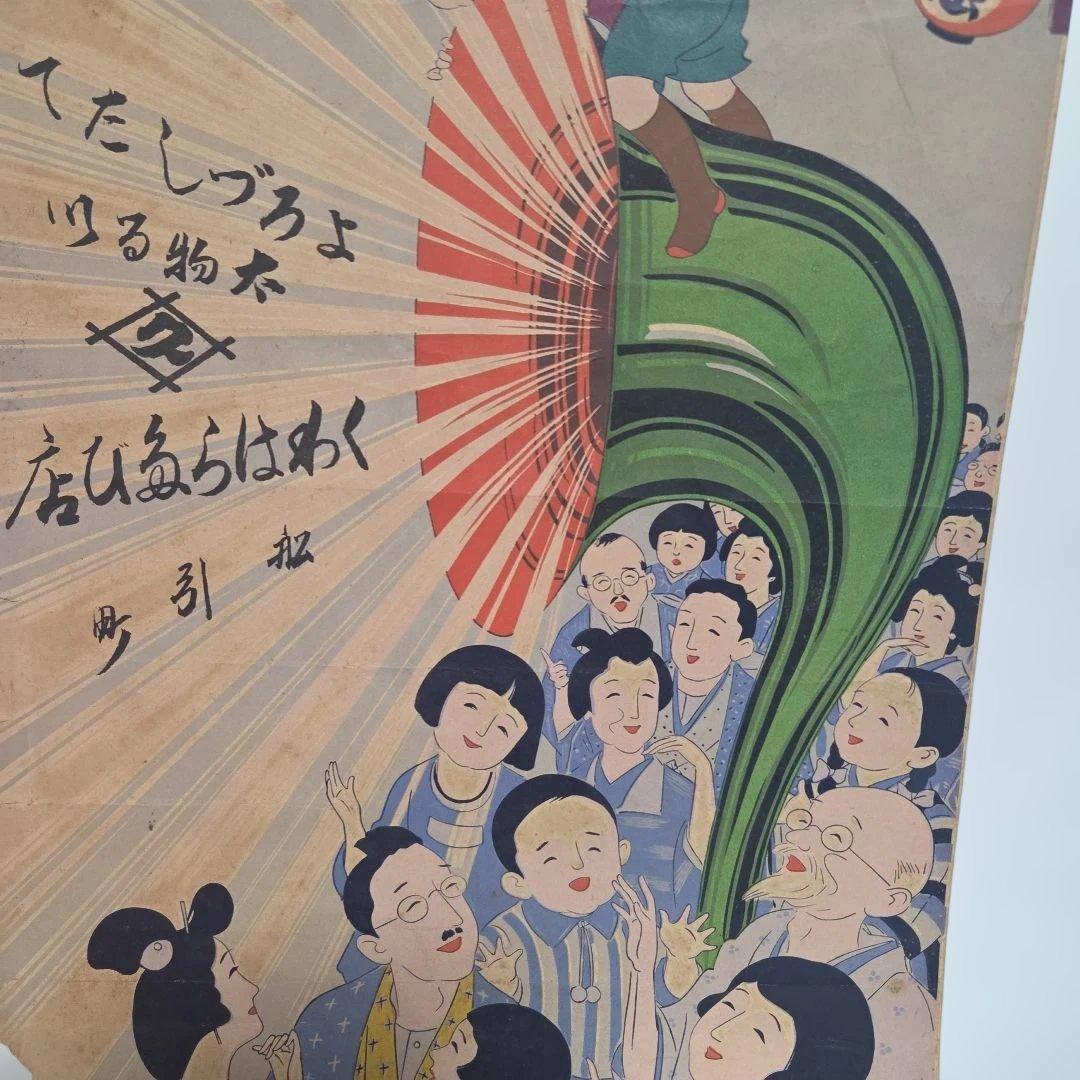 よろづしたて
太物るい
くわはら多び店
舩引町